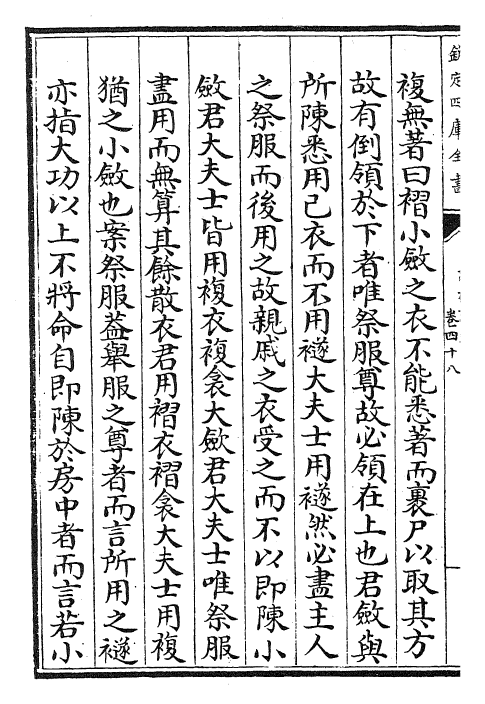 欽定四庫全書
卷四十八
複無著曰褶小斂之衣不能悉著而裹尸以取其方
故有倒領於下者唯祭服尊故必領在上也君斂與
所陳悉用己衣而不用襚大夫士用襚然必盡主人
之祭服而後用之故親戚之衣受之而不以即陳小
斂君大夫士皆用複衣複衾大斂君大夫士唯祭服
盡用而無算其餘散衣君用褶衣褶衾大夫士用複
猶之小斂也案祭服葢舉服之尊者而言所用之襚
亦指大功以上不將命自即陳於房中者而言若小